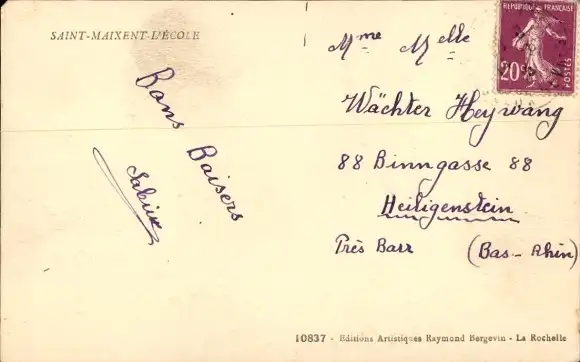 SAINT-MAIXENT-L'ÉCOLE
Bons Baisers
Sabine
Mme Melle
Wächter Heywang
88 Binngasse 88
Heiligenstein
Près Barr (Bas-Rhin)
RÉPUBLIQUE FRANÇAISE
20c
POSTES
10837 - Editions Artistiques Raymond Bergevin - La Rochelle